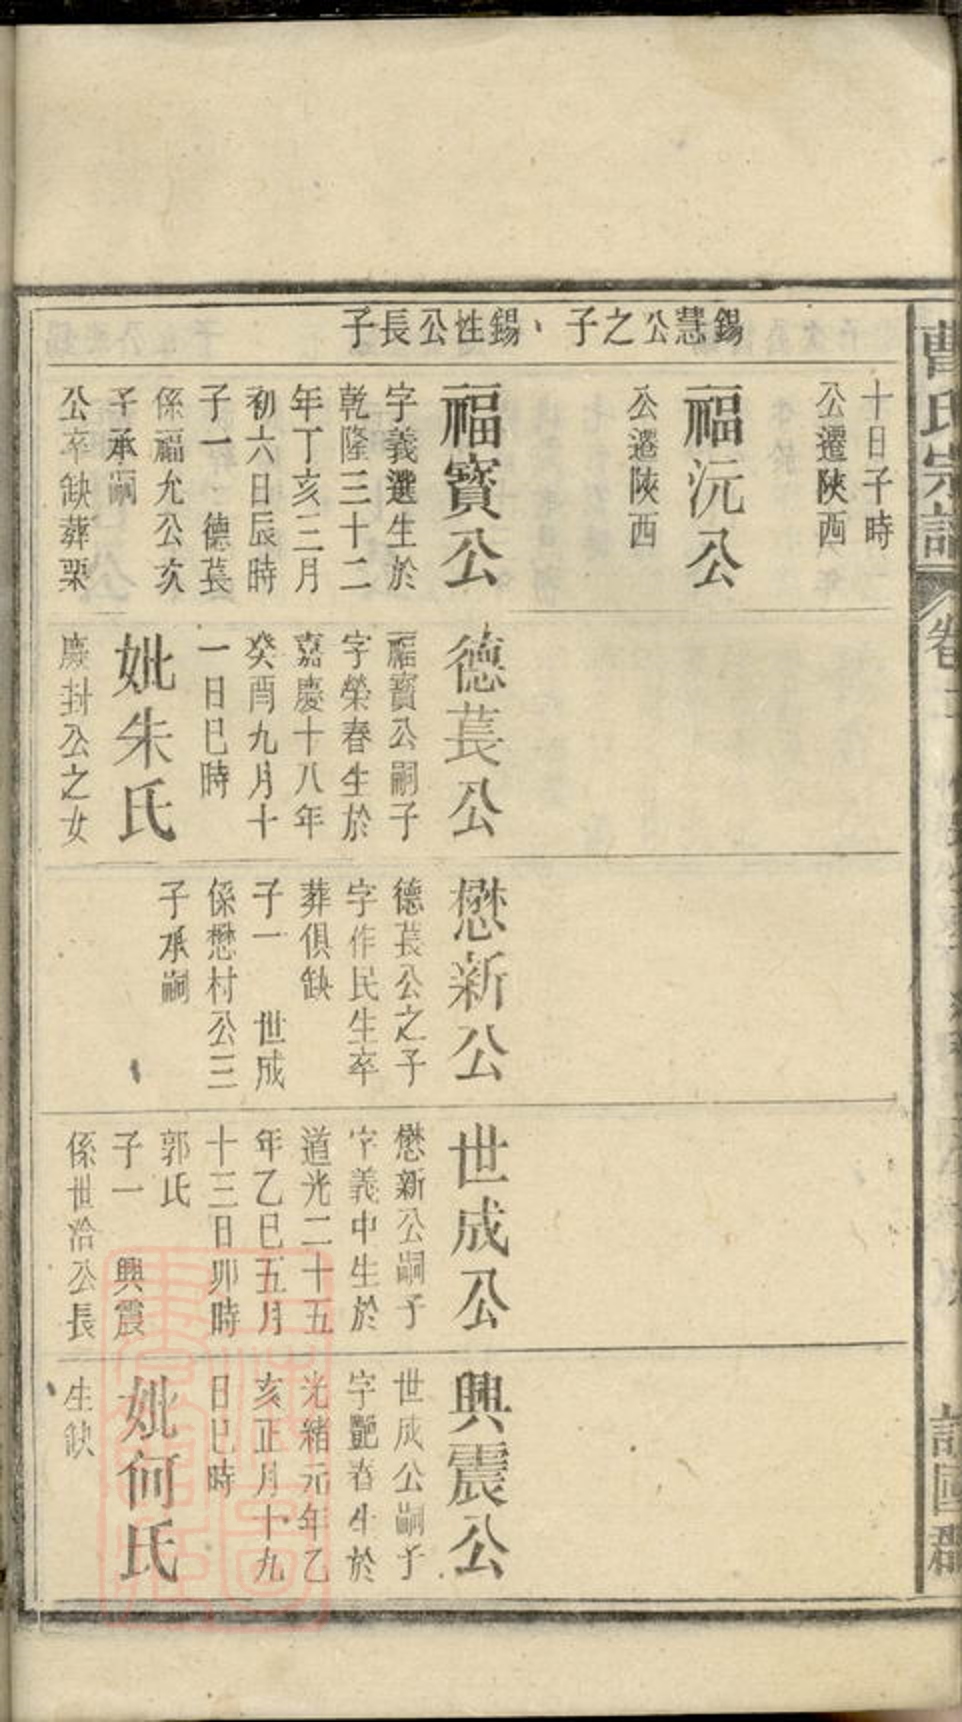 曹氏宗譜
卷
譙國郡
錫慧公之子
錫性公長子
十日子時
公遷陝西
福沅公
公遷陝西
福寶公
字義選生於
乾隆三十二
年丁亥三月
初六日辰時
子一　德萇
係福允公次
子承嗣
公卒缺葬栗
德萇公
福寶公嗣子
字榮春生於
嘉慶十八年
癸酉九月十
一日巳時
妣朱氏
慶封公之女
懋新公
德萇公之子
字作民生卒
葬俱缺
子一　世成
係懋村公三
子承嗣
世成公
懋新公嗣子
字義中生於
道光二十五
年乙巳五月
十三日卯時
郭氏
子一　興震
係世洽公長
興震公
世成公嗣子
字艷春生於
光緒元年乙
亥正月十九
日巳時
妣何氏
生缺